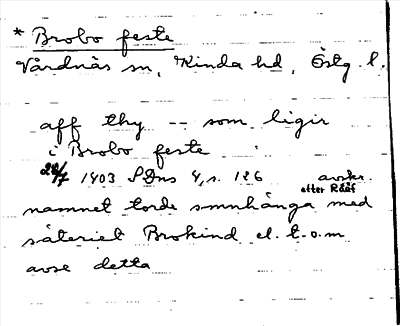 * Brobo feste
Vårdnäs sn, Kinda hd, Östg. l.
aff thy -- som ligir
i Brobo feste
28/7 1403 SDns 4, s. 126 avskr.
efter Rääf
namnet torde smnhänga med
säteriet Brokind el. t.o.m
avse detta